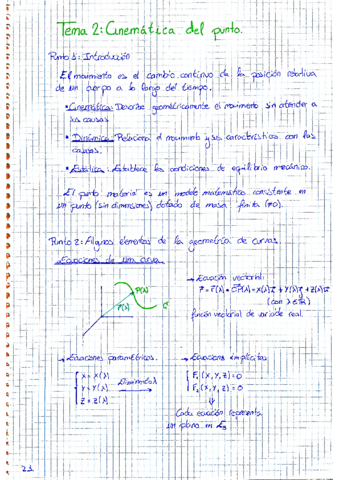 Tema 2: Cinemática del punto.
Punto 1: Introducción
El movimiento es el cambio continuo de la posición relativa
de un cuerpo a lo largo del tiempo.
• Cinemática: Describe geométricamente el movimiento sin atender a
las causas.
• Dinámica: Relaciona el movimiento y sus características con las
causas.
• Estática: Establece las condiciones de equilibrio mecánico.
El punto material es un modelo matemático consistente en
un punto (sin dimensiones) dotado de masa finita (≠0).
Punto 2: Algunos elementos de la geometría de curvas.
Ecuaciones de una curva
→ Ecuación vectorial:
P(λ)
r̄(λ)
C
(con λ∈ℝ)
función vectorial de variable real.
→ Ecuaciones paramétricas.
→ Ecuaciones implícitas
x = x(λ)
y = y(λ)
z = z(λ)
Eliminando λ
F₁(x, y, z) = 0
F₂(x, y, z) = 0
Cada ecuación representa
un plano en